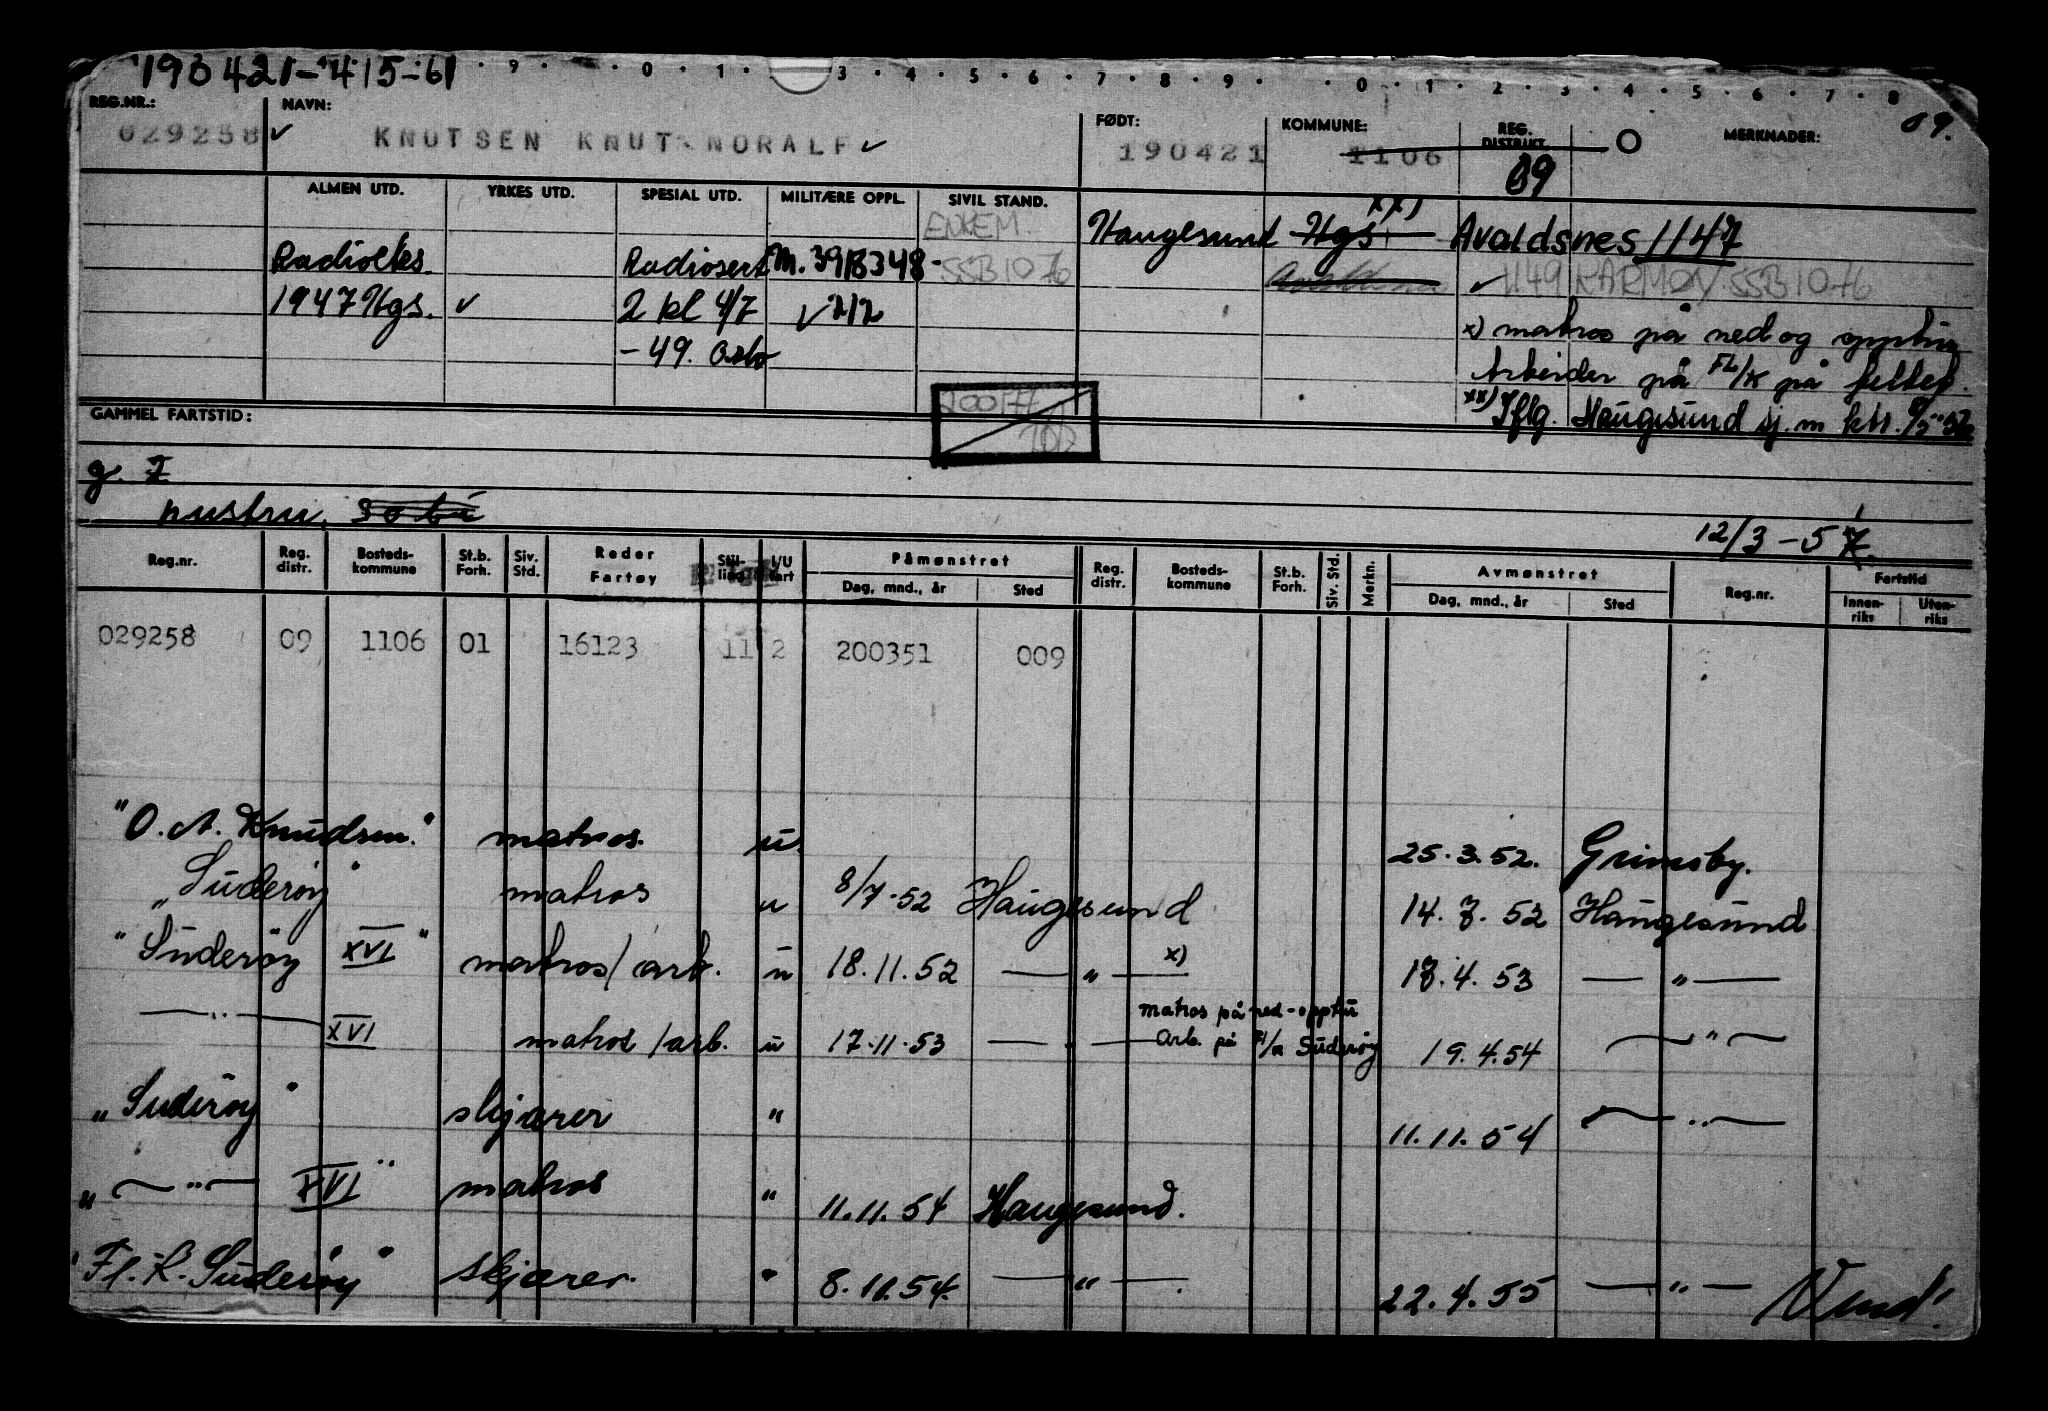 190421-415-61
9 0 1 3 4 5 6 7 8 9 0 1 2 3 4 5 6 7 8
REG.NR.: NAVN: FØDT: KOMMUNE: REG. DISTRIKT MERKNADER: 09.
029258 ✓ KNUTSEN KNUT NORALF ✓ 190421 1106 09
ALMEN UTD. YRKES UTD. SPESIAL UTD. MILITÆRE OPPL. SIVIL STAND.
ENKEM. Haugesund Hgs xx) Avaldsnes 1147
Radiotkes. Radiosert M. 3918348- SSB 1076 ✓ 1149 KARMØY SSB 1076
1947 Hgs. ✓ 2 kl 4/7 ✓ 2/2 x) matros på ned og opptur
-49. Oslo Arbeider på FL/K på feltet.
xx) Iflg. Haugesund sj.m ktr.
GAMMEL FARTSTID:
g. I
12/3-57
Reg.nr. Reg. distr. Bosteds-kommune St.b. Forh. Siv. Std. Reder Fartøy Stil-ling I/U fart Påmønstret Dag, mnd., år Sted Reg. distr. Bosteds-kommune St.b. Forh. Siv. Std. Merkn. Avmønstret Dag, mnd., år Sted Reg.nr. Fartstid Innen-riks Uten-riks
029258 09 1106 01 16123 11 2 200351 009
"O. A. Knudsen." matros. u. 25.3.52. Grimsby.
"Suderøy" matros u 8/7-52 Haugesund 14.7.52 Haugesund
"Suderøy XVI" matros/arb. u 18.11.52 — " — x) 17.4.53 — " —
matros på ned-opptur
— " — XVI matros/arb. u 17.11.53 — " — Arb. på Fl/k Suderøy 19.4.54 — " —
"Suderøy" skjærer " 11.11.54 — " —
" — " — XVI" matros " 11.11.54 Haugesund.
"Fl.k. Suderøy" skjærer " 8.11.54. — " — 22.4.55 — " — Vend!